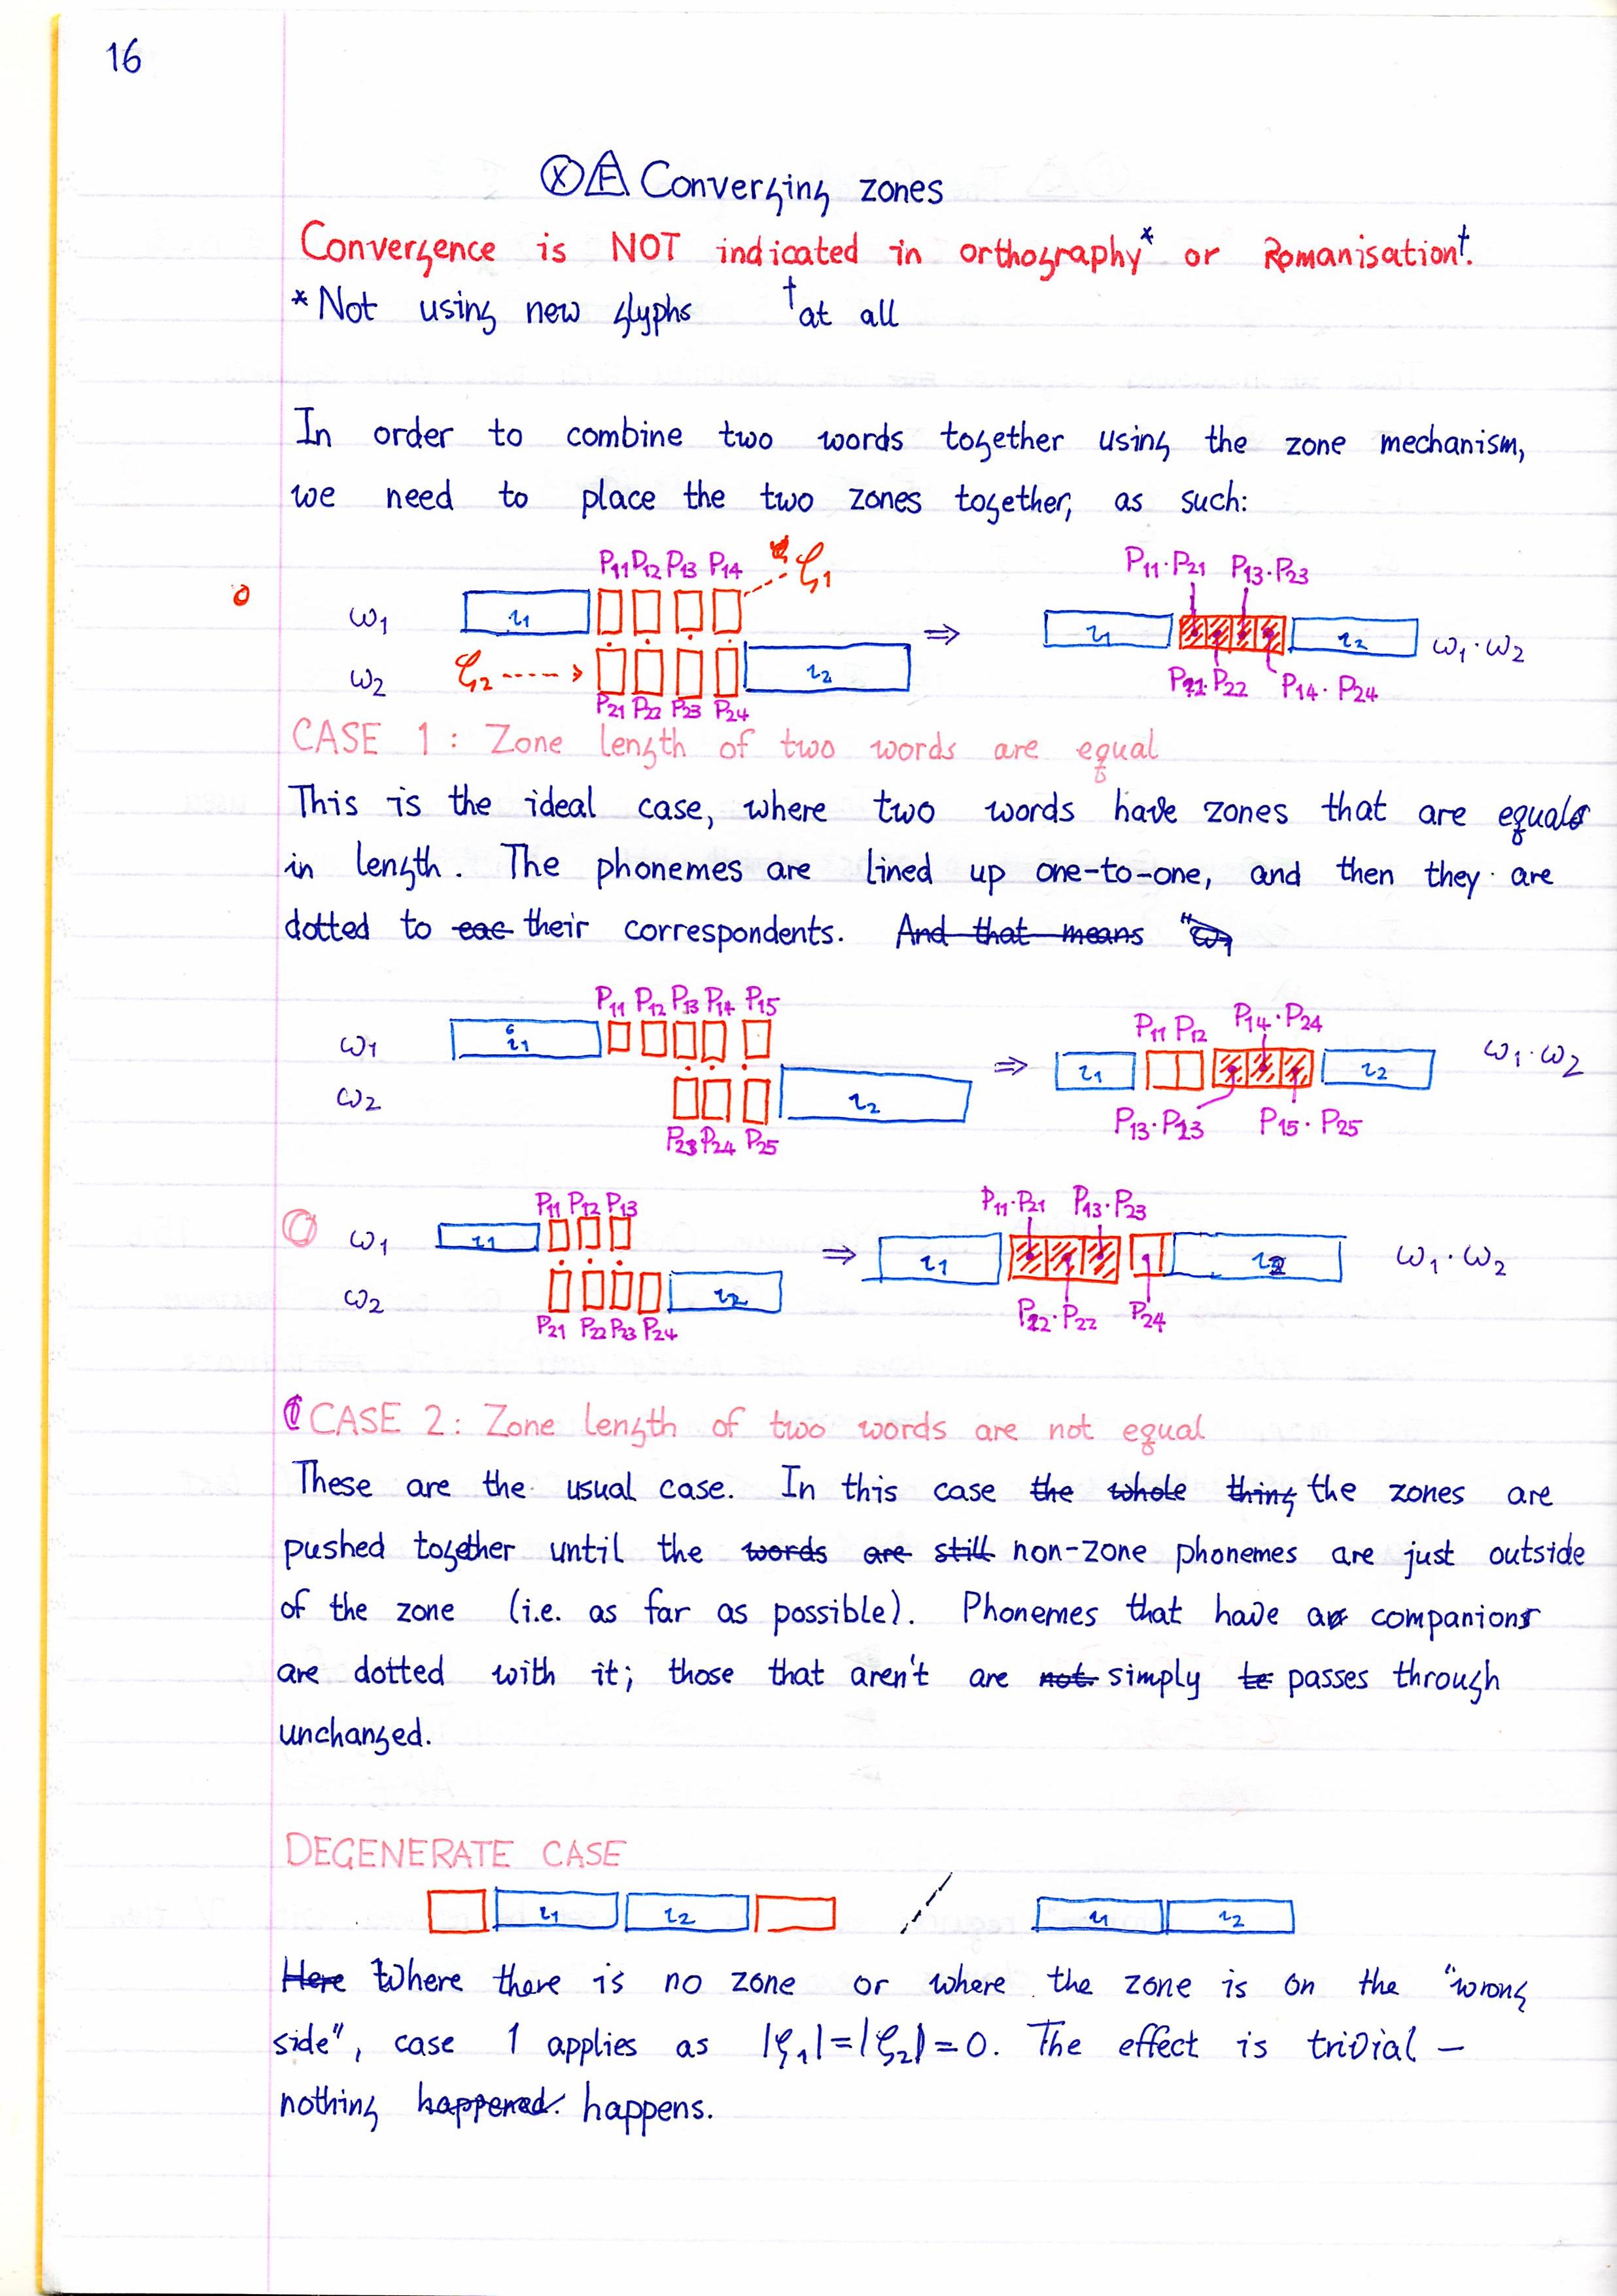 16
Ⓧ Converging zones
Convergence is NOT indicated in orthography* or Romanisation†.
*Not using new glyphs †at all
In order to combine two words together using the zone mechanism,
we need to place the two zones together, as such:
P11 P12 P13 P14 ζ1
P11·P21 P13·P23
ω1 ι1
⇒ ι1 ι2 ω1·ω2
ω2 ζ2 ι2
P22 P14·P24
P21 P22 P23 P24
CASE 1: Zone length of two words are equal
This is the ideal case, where two words have zones that are equal
in length. The phonemes are lined up one-to-one, and then they are
dotted to eac their correspondents. And that means
P11 P12 P13 P14 P15
P11 P12 P14·P24
ω1 ι1
⇒ ι1 ι2 ω1·ω2
ω2 ι2
P13·P23 P15·P25
P23 P24 P25
P11 P12 P13
P11·P21 P13·P23
ω1 ι1
⇒ ι1 ι2 ω1·ω2
ω2 ι2
P22·P22 P24
P21 P22 P23 P24
CASE 2: Zone length of two words are not equal
These are the usual case. In this case the whole thing the zones are
pushed together until the words are still non-zone phonemes are just outside
of the zone (i.e. as far as possible). Phonemes that have a companions
are dotted with it; those that aren't are not simply to passes through
unchanged.
DEGENERATE CASE
ι1 ι2 ι1 ι2
Here Where there is no zone or where the zone is on the "wrong
side", case 1 applies as |ζ1|=|ζ2|=0. The effect is trivial –
nothing happened. happens.